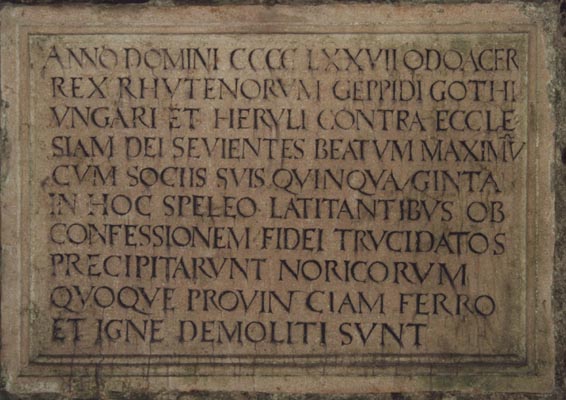 ANNO DOMINI CCCC LXXVII ODOACER
REX RHVTENORVM GEPPIDI GOTHI
VNGARI ET HERVLI CONTRA ECCLE
SIAM DEI SEVIENTES BEATVM MAXIMV̄
CVM SOCIIS SVIS QVINQVAGINTA
IN HOC SPELEO LATITANTIBVS OB
CONFESSIONEM FIDEI TRVCIDATOS
PRECIPITARVNT NORICORVM
QVOQVE PROVINCIAM FERRO
ET IGNE DEMOLITI SVNT